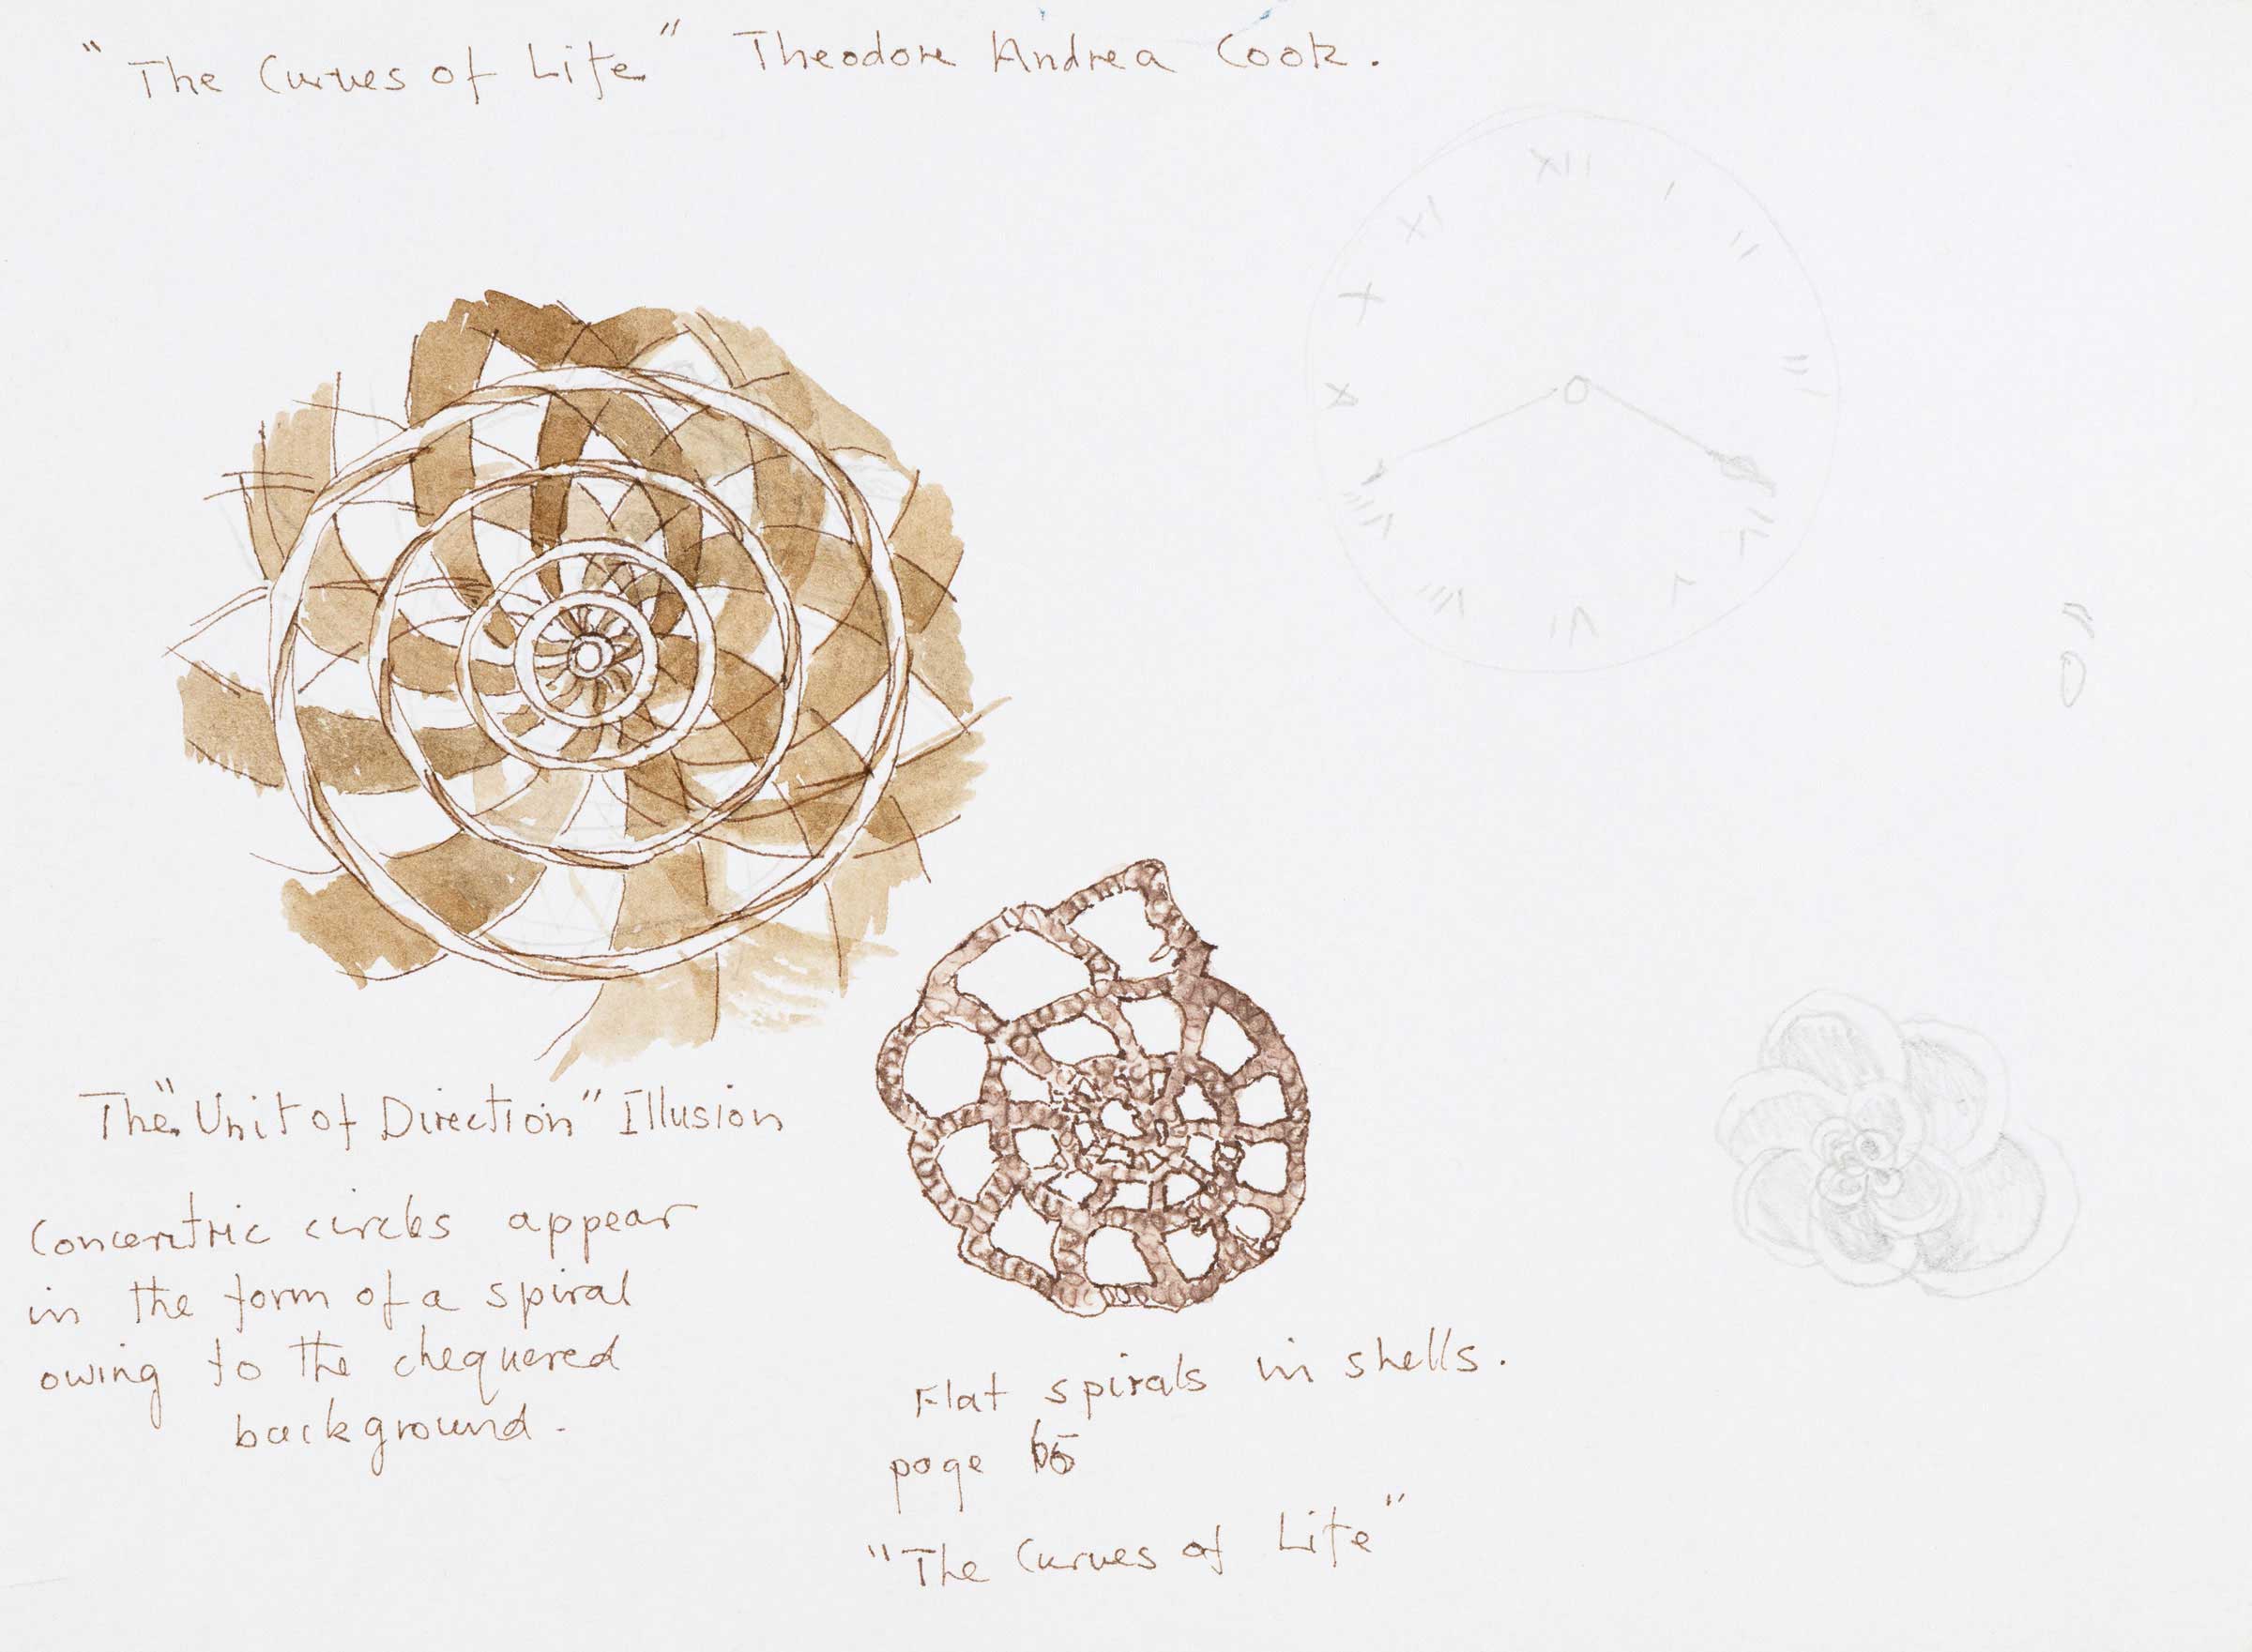 "The Curves of Life" Theodore Andrea Cook.
XII
I
II
XI
X
III
The "Unit of Direction" Illusion
Concentric circles appear
in the form of a spiral
owing to the chequered
background.
Flat spirals in shells.
page
"The Curves of Life"